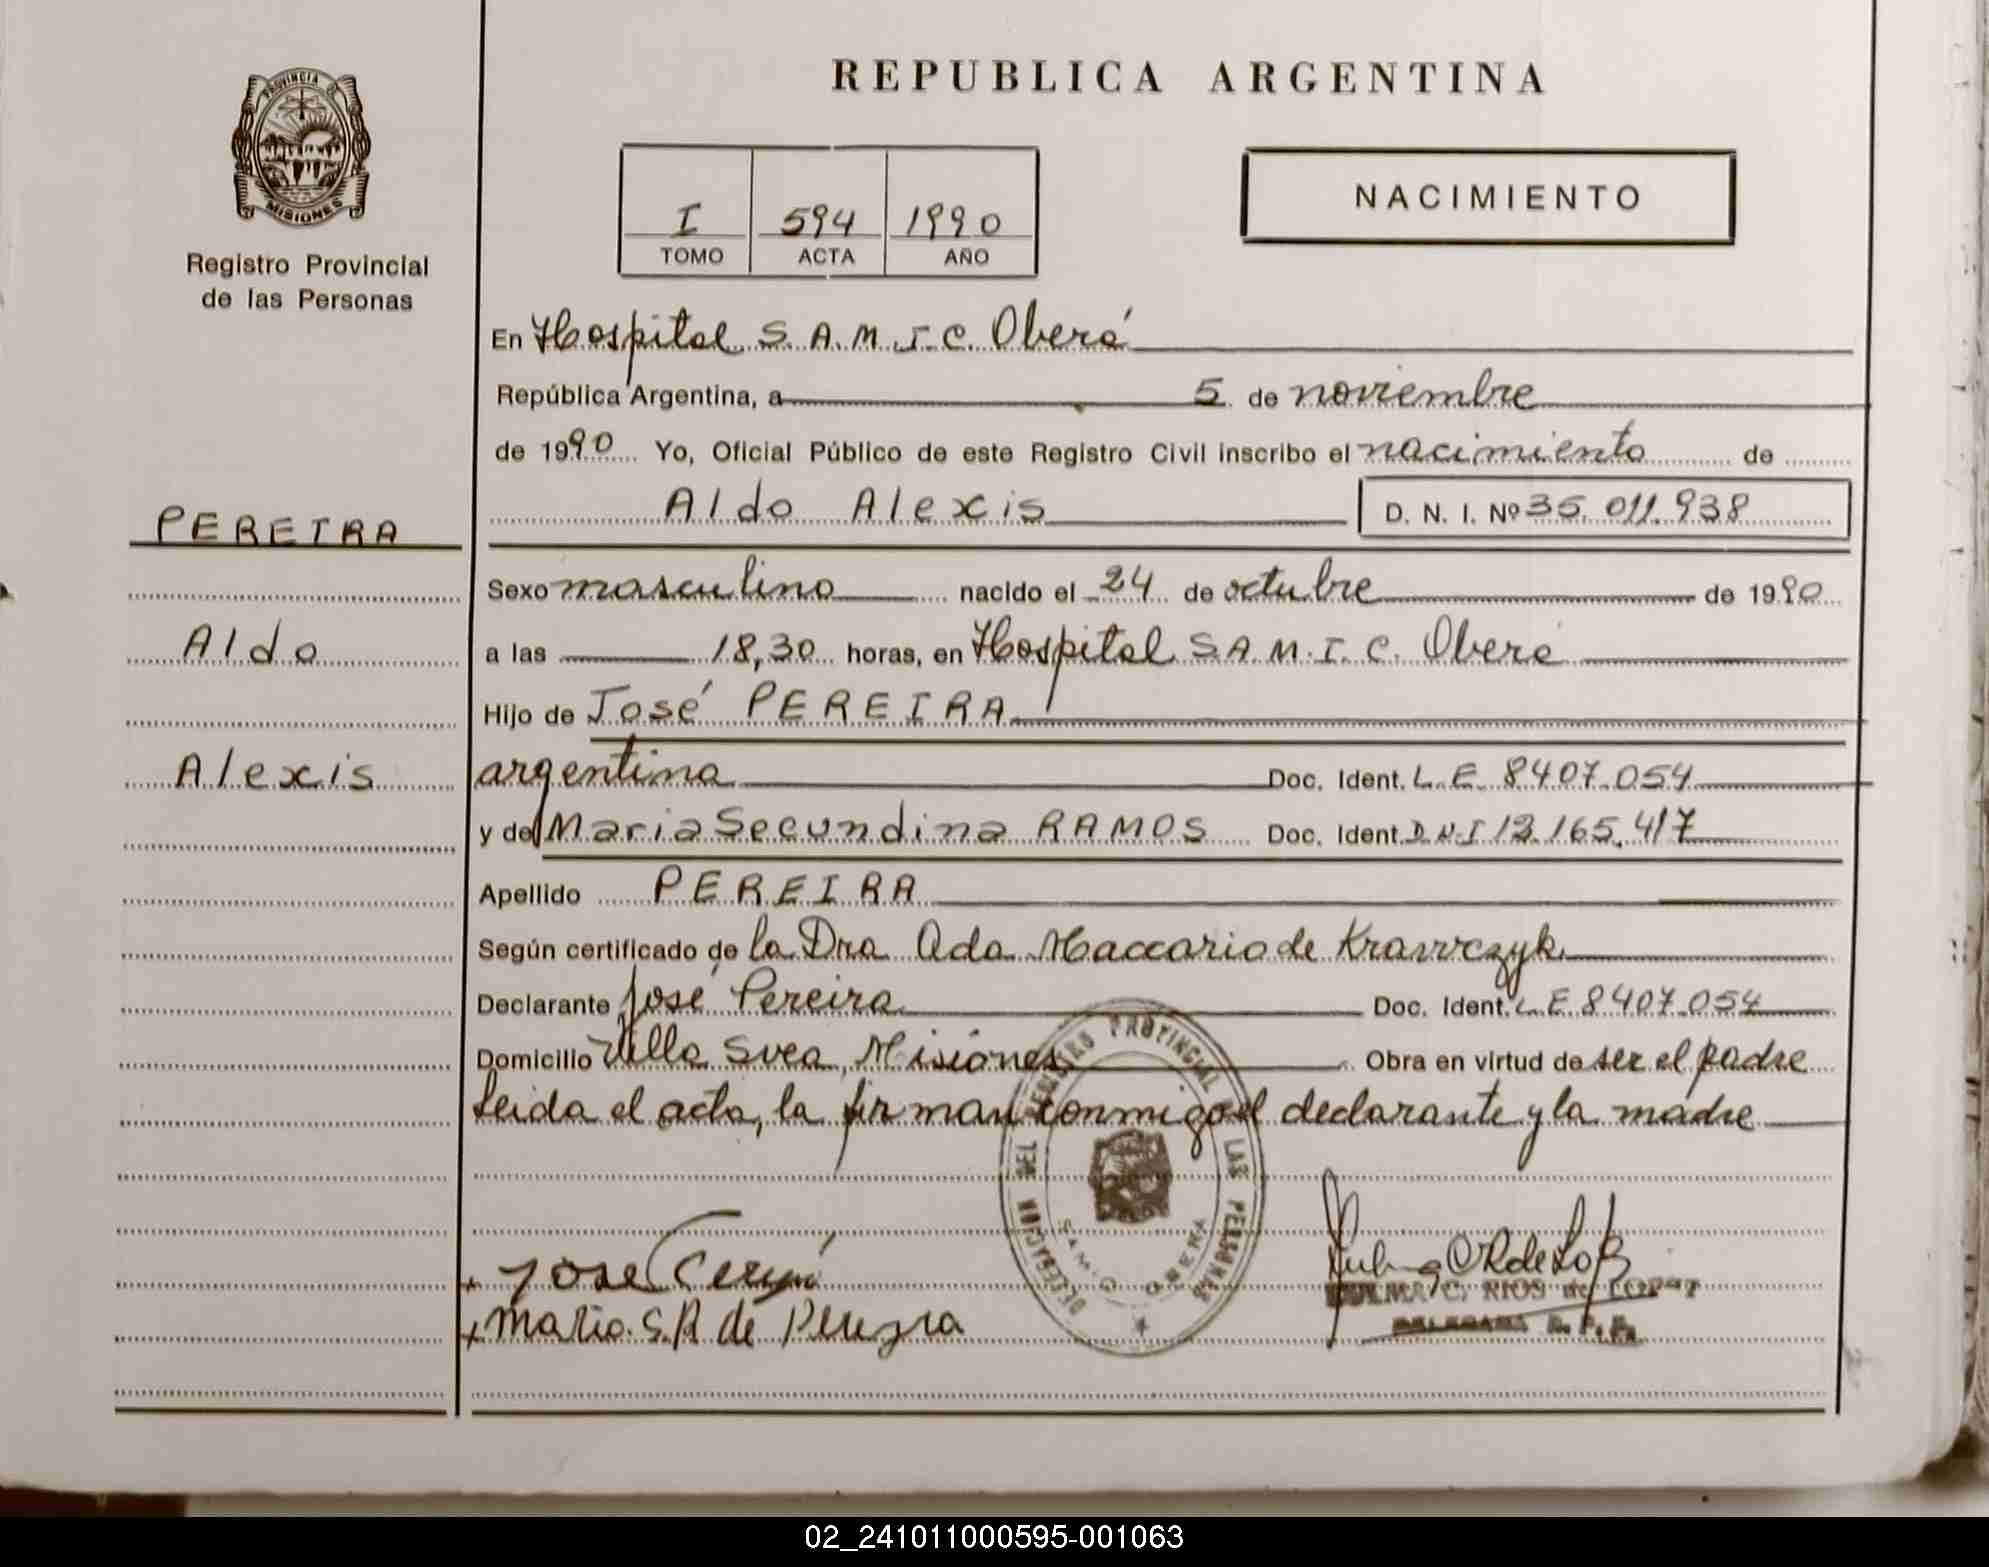 REPUBLICA ARGENTINA
PROVINCIA DE
MISIONES
Registro Provincial
de las Personas
I 594 1990
TOMO ACTA AÑO
NACIMIENTO
En Hospital S.A.M.I.C. Oberá
República Argentina, a 5 de noviembre
de 1990 Yo, Oficial Público de este Registro Civil inscribo el nacimiento de
Aldo Alexis D. N. I. Nº 35.011.938
PEREIRA
Aldo
Alexis
Sexo masculino nacido el 24 de octubre de 1990
a las 18,30 horas, en Hospital S.A.M.I.C. Oberá
Hijo de José PEREIRA
argentina Doc. Ident. L.E. 8407.054
y de Maria Secundina RAMOS Doc. Ident. D.N.I 12.165.417
Apellido PEREIRA
Según certificado de la Dra Ada Maccario de Krawczyk
Declarante José Pereira Doc. Ident. L.E 8407.054
Domicilio Villa Svea, Misiones Obra en virtud de ser el padre
Leida el acta, la firman conmigo el declarante y la madre
DELEGACION DEL REGISTRO PROVINCIAL LAS PERSONAS
SAMIC OBERA
Jose
Maria S.R de Pereyra
C. RIOS de LOPEZ
02_241011000595-001063